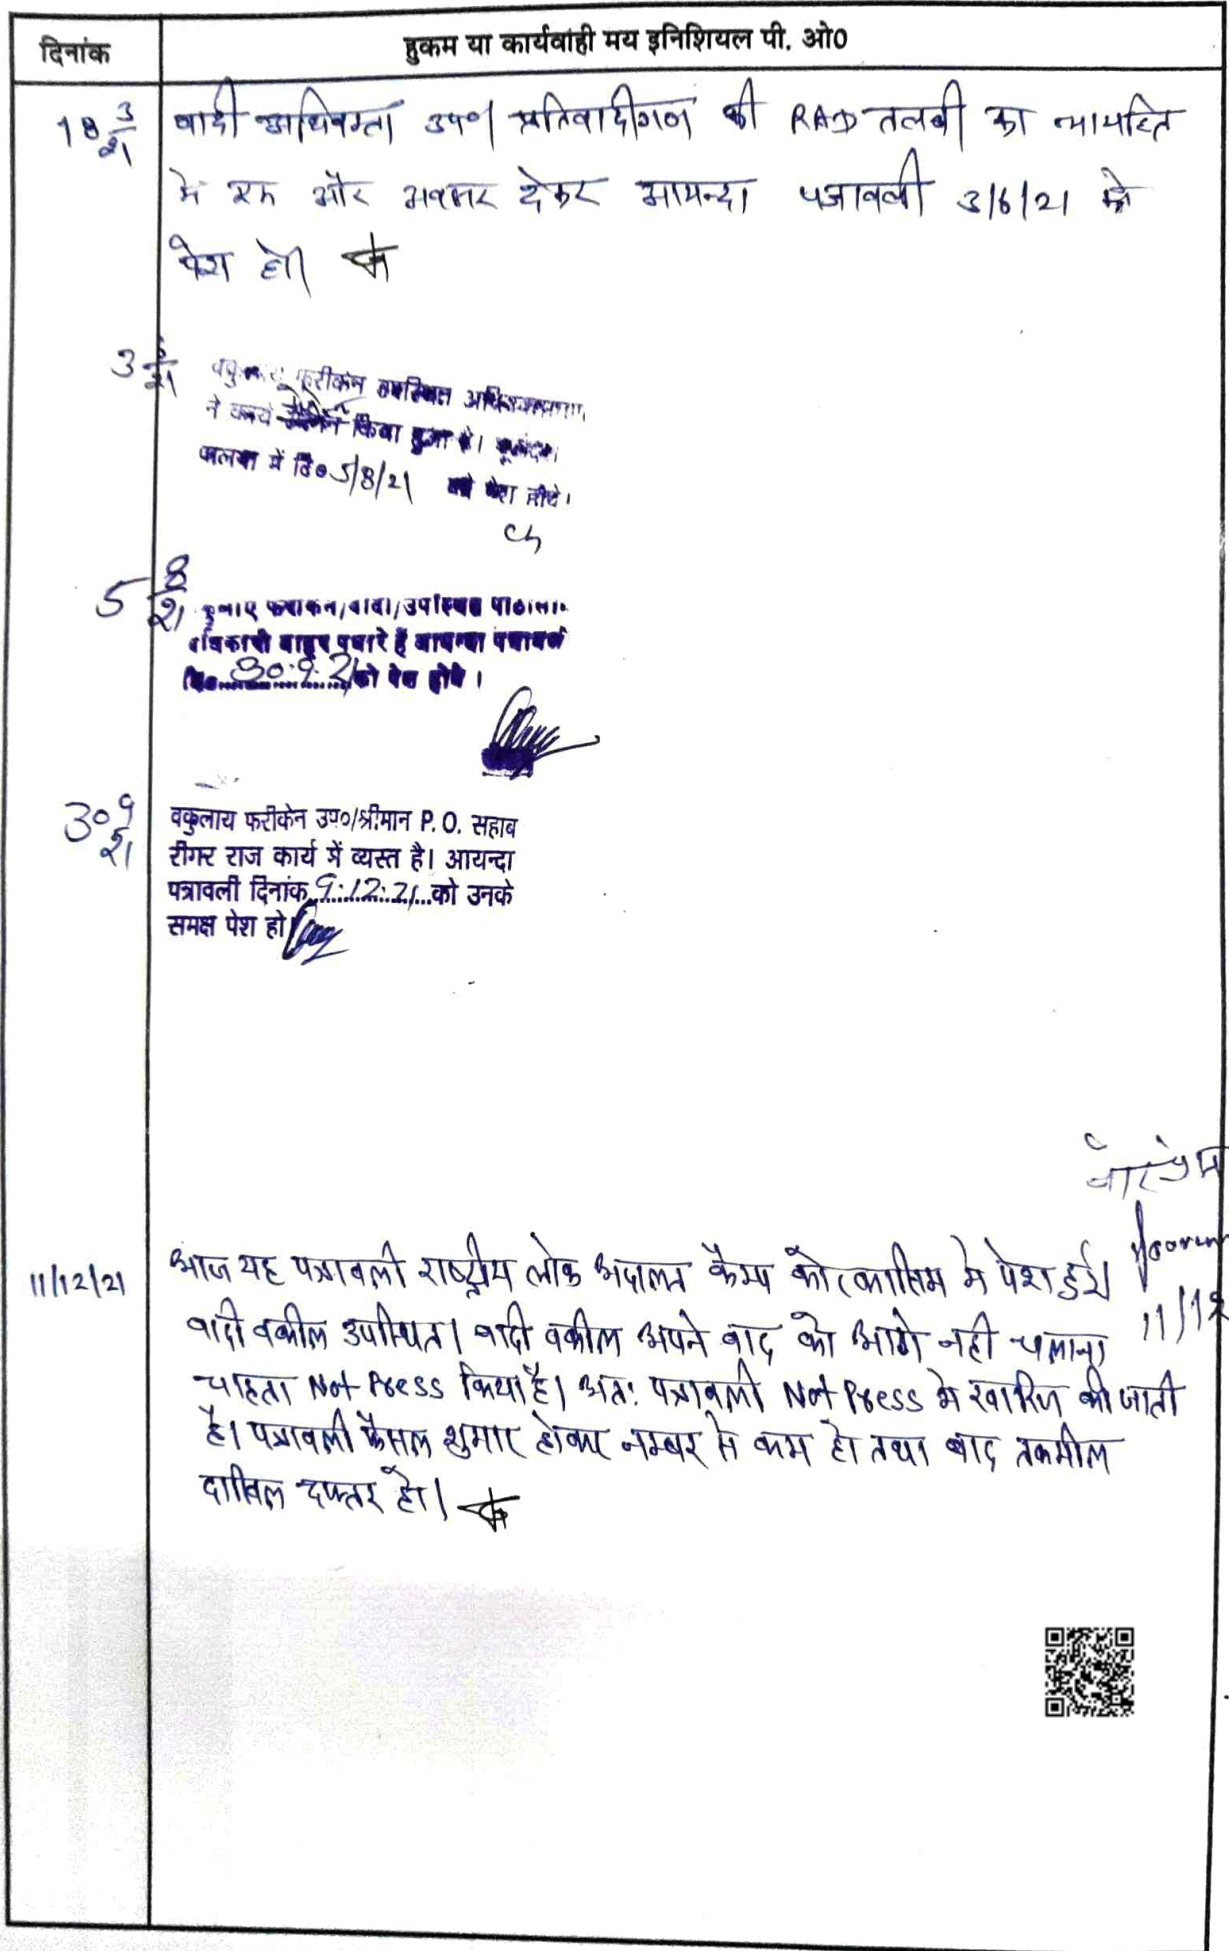 दिनांक
हुकम या कार्यवाही मय इनिशियल पी. ओ०
18 3/21
वादी अधिवक्ता उप०। प्रतिवादीगण की RAD तलबी का न्यायहित
में एक और अवसर देकर आयन्दा पत्रावली 3/6/21 को
पेश हो।
3 6/21
फरीकेन उपस्थित
ने कार्य किया हुआ है।
में दि० 5/8/21 को पेश होवे।
5 8/21
बाहर पधारे है आयन्दा पत्रावली
दि० 30.9.21 को पेश होवे।
30 9/21
वकुलाय फरीकेन उप०/श्रीमान P. O. सहाब
दीगर राज कार्य में व्यस्त है। आयन्दा
पत्रावली दिनांक 9.12.21 को उनके
समक्ष पेश हो
11/12
11/12/21
आज यह पत्रावली राष्ट्रीय लोक अदालत कैम्प कोटकासिम मे पेश हुई।
वादी वकील उपस्थित। वादी वकील अपने वाद को आगे नही चलाना
चाहता Not Press किया है। अतः पत्रावली Not Press मे खारिज की जाती
है। पत्रावली फैसल शुमार होकर नम्बर से कम हो तथा बाद तकमील
दाखिल दफ्तर हो।